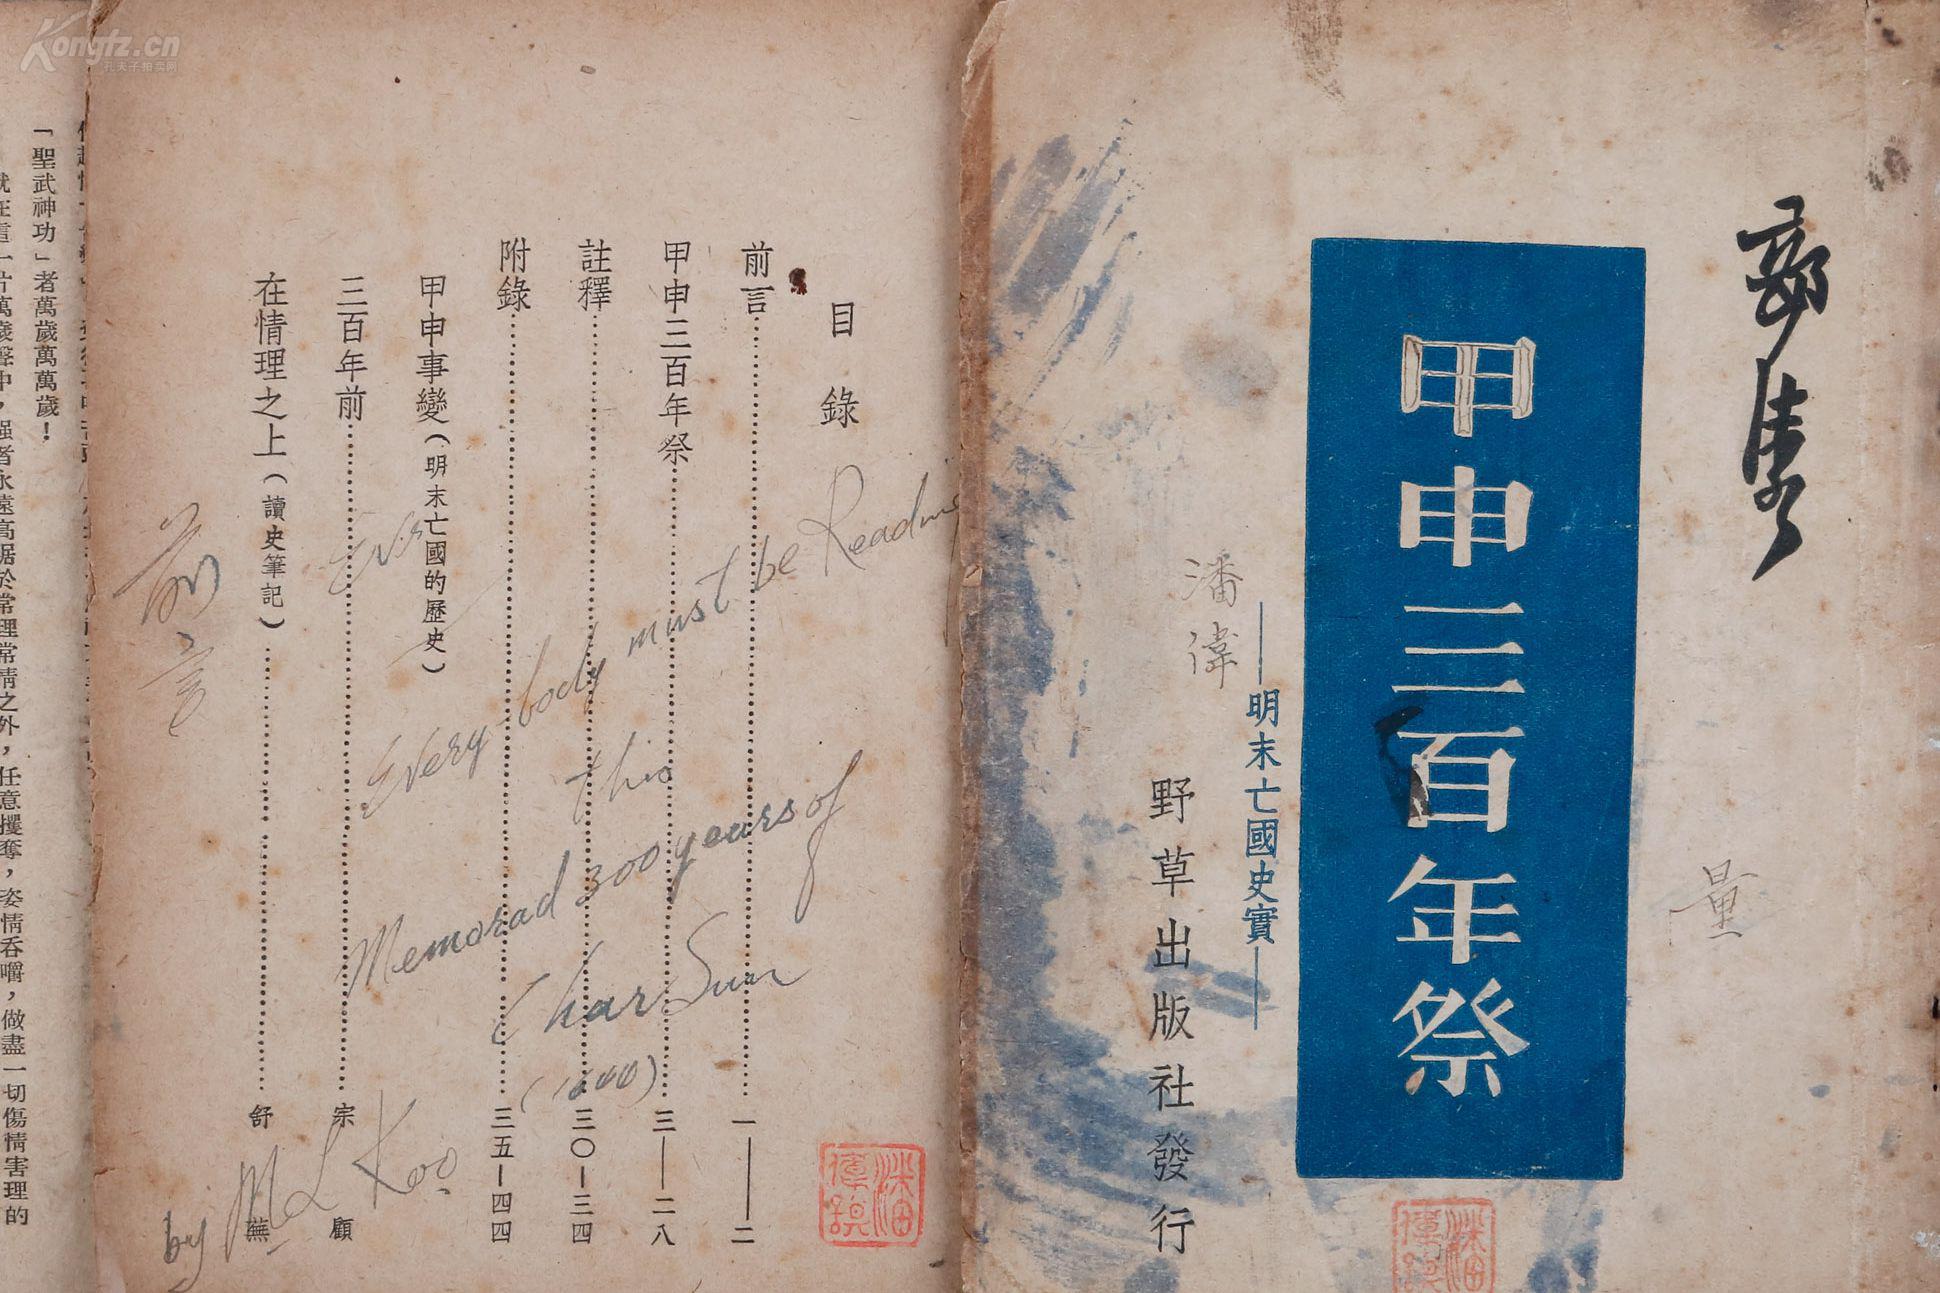 Kongfz.cn
孔夫子拍卖网
甲申三百年祭
——明末亡國史實——
潘偉
野草出版社發行
量
目錄
前言 一——二
甲申三百年祭 三——二八
註釋 三〇—三四
附錄 三五—四四
甲申事變（明末亡國的歷史）
三百年前 宗顧
在情理之上（讀史筆記） 舒蕪
前言
Every-body must be Reading
this
Memorad 300 years of
by M L Koo
「聖武神功」者萬歲萬萬歲！
就在這一片萬歲聲中，强者永遠高踞於常理常情之外，任意攫奪，姿情吞嚼，做盡一切傷情害理的